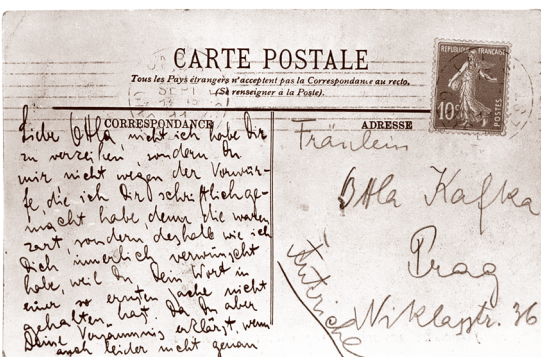 CARTE POSTALE
Tous les Pays étrangers n'acceptent pas la Correspondance au recto.
(Se renseigner à la Poste).
REPUBLIQUE FRANÇAISE
10c
POSTES
CORRESPONDANCE
Liebe Ottla, nicht ich habe Dir
zu verzeihen sondern Du
mir nicht wegen der Vorwür-
fe, die ich Dir schriftlich ge-
macht habe, denn die waren
zart, sondern deshalb wie ich
Dich innerlich verwünscht
habe, weil Du Dein Wort in
einer so ernsten Sache nicht
gehalten hast. Da Du aber
Deine Versäumnis erklärst, wenn
auch leider nicht genau
ADRESSE
Fräulein
Ottla Kafka
Prag
Niklasstr. 36
Autriche